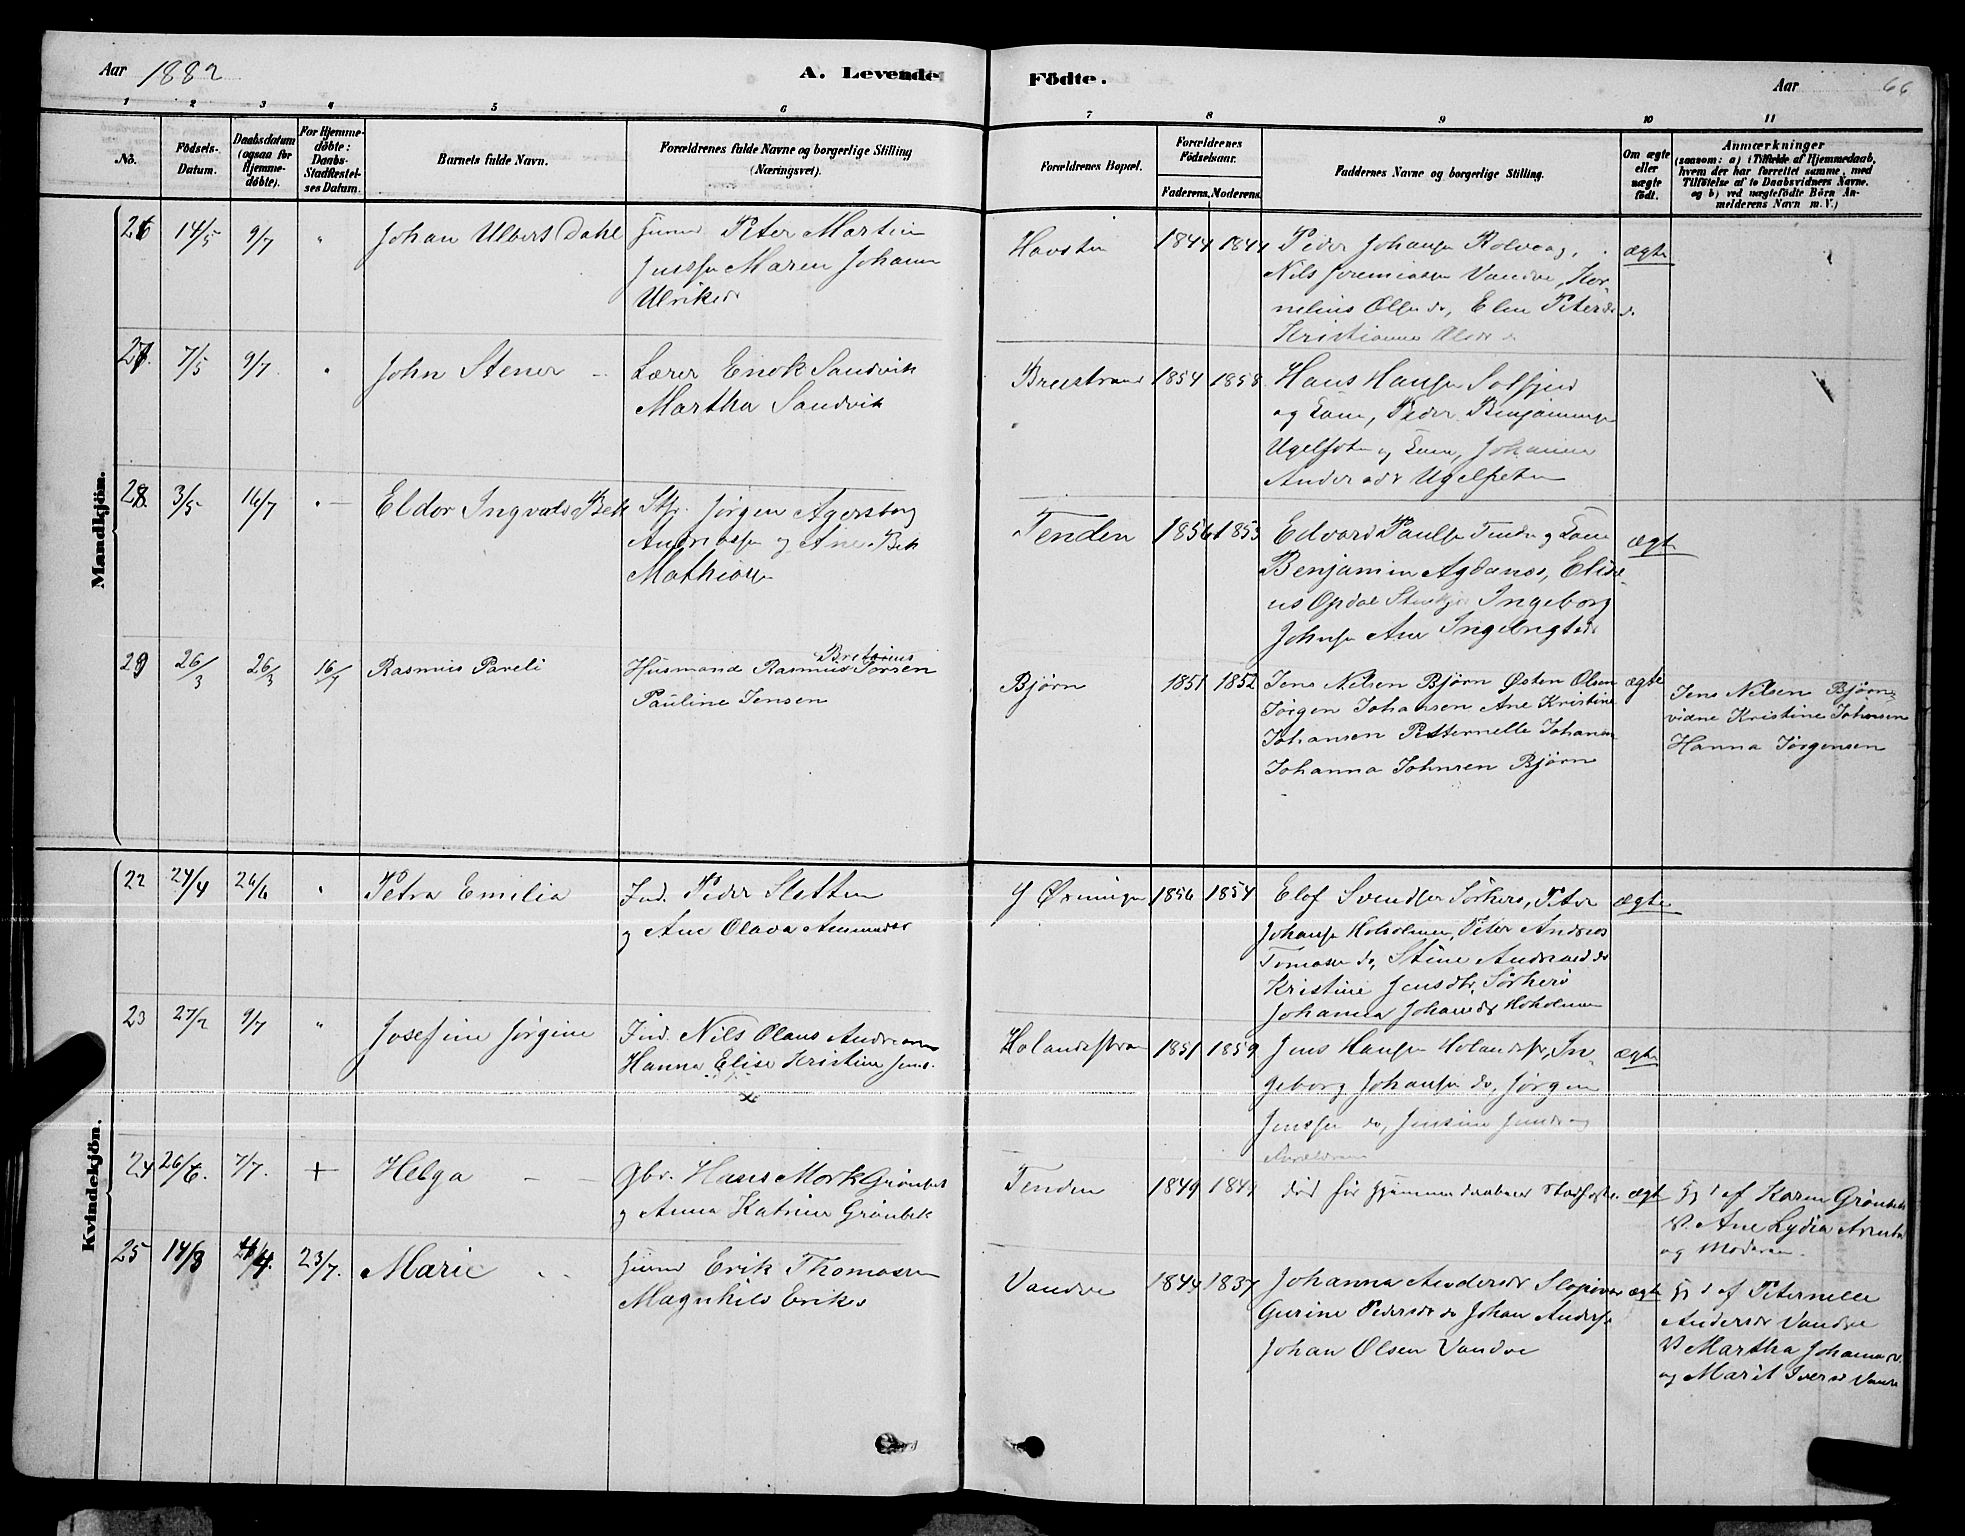 Aar 1882
A. Levende Födte.
Aar 66
1 2 3 4 5 6 7 8 9 10 11
No.
Födsels-
Datum.
Daabsdatum
(ogsaa for
Hjemme-
döbte).
For Hjemme-
döbte:
Daabs-
Stadfæstel-
ses Datum.
Barnets fulde Navn.
Forældrenes fulde Navne og borgerlige Stilling
(Næringsvei).
Forældrenes Bopæl.
Forældrenes
Födselsaar.
Faderens. Moderens.
Faddernes Navne og borgerlige Stilling.
Om ægte
eller
uægte
födt.
Anmærkninger
(saasom: a) i Tilfælde af Hjemmedaab,
hvem der har forrettet samme, med
Tilföielse af to Daabsvidners Navne.
og b) ved uægtefödte Börn An-
melderens Navn m. V.)
Mandkjön.
26 14/5 9/7 " Johan Ulbert Dahl
Peter Martin
Maren Johanna
Ulriksd
Havsten
1844 1844
Peder Johansen Rolvaag,
Nils Jeremiassen Vandve, Kor-
nelius Olsen do, Elen Petersd do
Kristianna Olsdr
ægte
27 7/5 9/7 " John Stener
Lærer Enok Sandvik
Martha Sandvik
Breistrand
1854 1858
Hans Hansen Solfjeld
og Kone, Peder Benjaminsen
og Kone, Johanna
Andersdr
28 3/5 16/7 " Eldor Ingvald Bek
Jørgen Agersborg
Andreassen og Ane Bek
Mathiassen
Tenden
1856 1853
Edvard Paulsen Tenden og Kone
Benjamin Agdanes, Elise-
us Opdal Ingeborg
Johnsen Ane Ingebrigtsdr
ægte
29 26/3 26/3 16/7 Rasmus Pareli
Husmand Rasmus Bretorius Torsen
Pauline Jensen
Bjørn
1851 1852
Jens Nelsen Bjørn Østen Olsen
Jørgen Johansen Ane Kristine
Johansen Petternelle Johansen
Johanna Johnsen Bjørn
ægte
Jens Nelsen Bjørn
vidne Kristine Johnsen
Hanna Jørgensen
Kvindekjön.
22 24/4 26/6 " Petra Emilia
Ind. Peder Sletten
og Ane Olava Amundsdr
1856 1854
Elof Svendsen Sörherö, Peter
Johansen Hoholmen, Peter Andreas
Tomassen do, Stine Andreasd do
Kristine Jensdtr, Sörherö
Johanna Johansdr Hoholmen
ægte
23 27/2 9/7 " Josefine Jørgine
Ind. Nils Olaus Andreassen
Hanna Elise Kristine Jensd.
x
Holandsstrand
1851 1859
Jens Hansen Holandsstr, In-
geborg Johansen do, Jørgen
Jenssen do, Jensine Jensdr og
Forældrene
ægte
24 26/6. 7/7. + Helga
Gbr. Hans Mork Grønbek
og Anna Katrine Grønbek
Tenden
1849
død før hjemmedaaben Stadfæstes.
ægte
af Karen Grönbek
V. Ane Lydia
og Moderen.
25 14/3 4/4. 23/7. Marie
Erik Thomassen
Magnhild Eriksd
Vandve
1844 1837
Johanna Andersdr
Gurine Pedersdr do Johan Andersen
Johan Olsen Vandve
ægte
af Peternelle
Andersdr Vandve
V Martha Johannesd.
og Marit Iversd Vandve